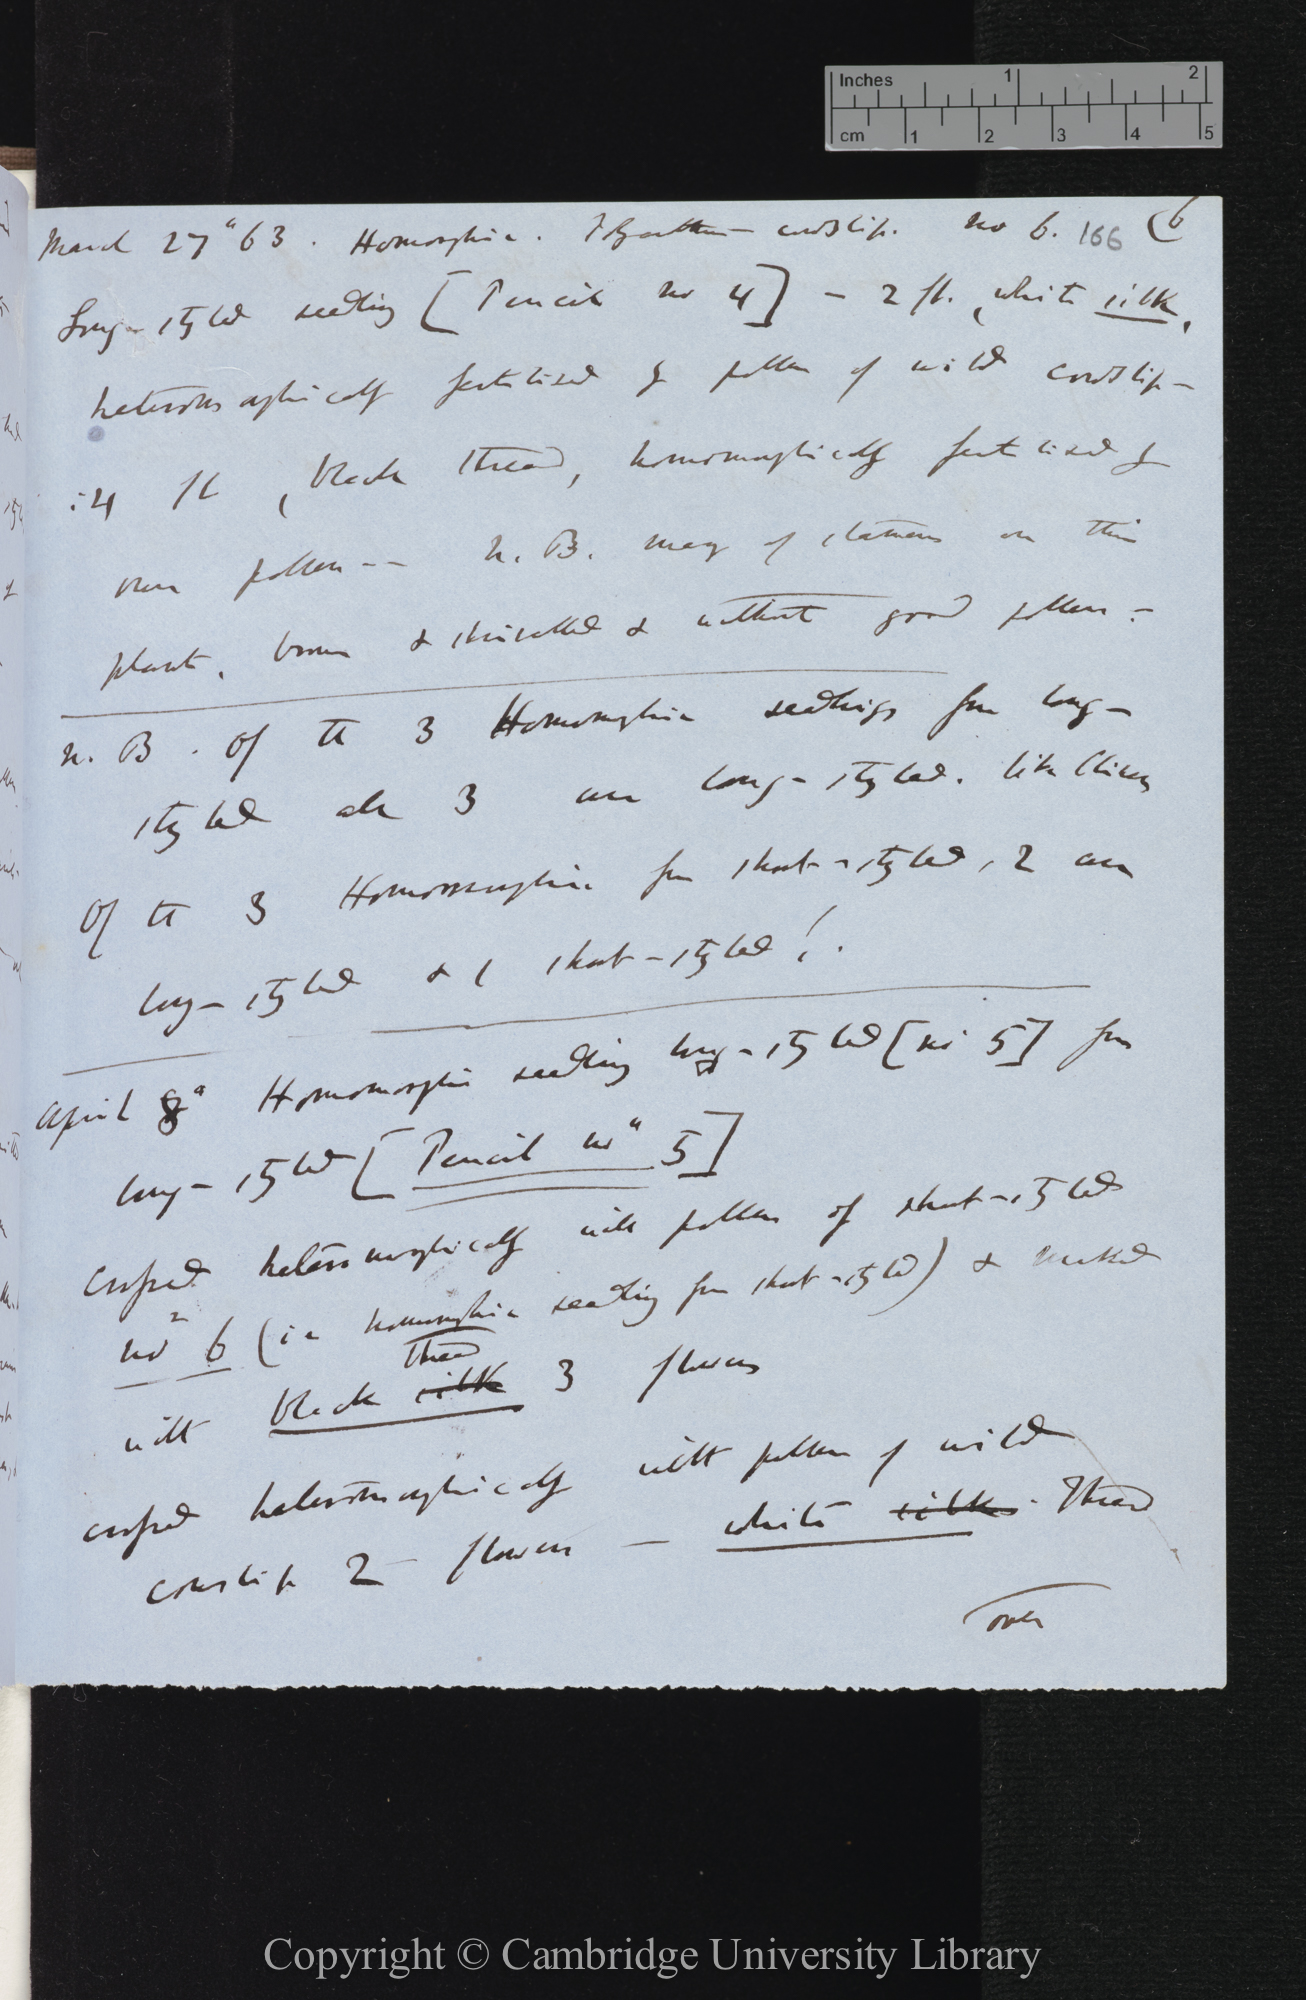 Inches 1 2
cm 1 2 3 4 5
March 27th 63. Homomorphic. cowslip. no 6. 166 (6
Long-styled seedling [Pencil no 4] — 2 fl. (white silk,
heteromorphically fertilised by pollen of wild cowslip —
:4 fl (black thread, homomorphically fertilised by
own pollen -- N.B. many of stamens on this
plant, brown & shrivelled & without good pollen -
N.B. of the 3 Homomorphic seedlings from long-
styled all 3 are long-styled. like
Of the 3 Homomorphic from short-styled, 2 are
long-styled & 1 short-styled!.
April 8th Homomorphic seedling long-styled [no 5] from
long-styled [Pencil no 5]
crossed heteromorphically with pollen of short-styled
no 6 (ie homomorphic seedling from short-styled) & marked
thread
with black silk 3 flowers
crossed heteromorphically with pollen of wild
cowslip 2 flowers — white silk. Thread
over
Copyright © Cambridge University Library